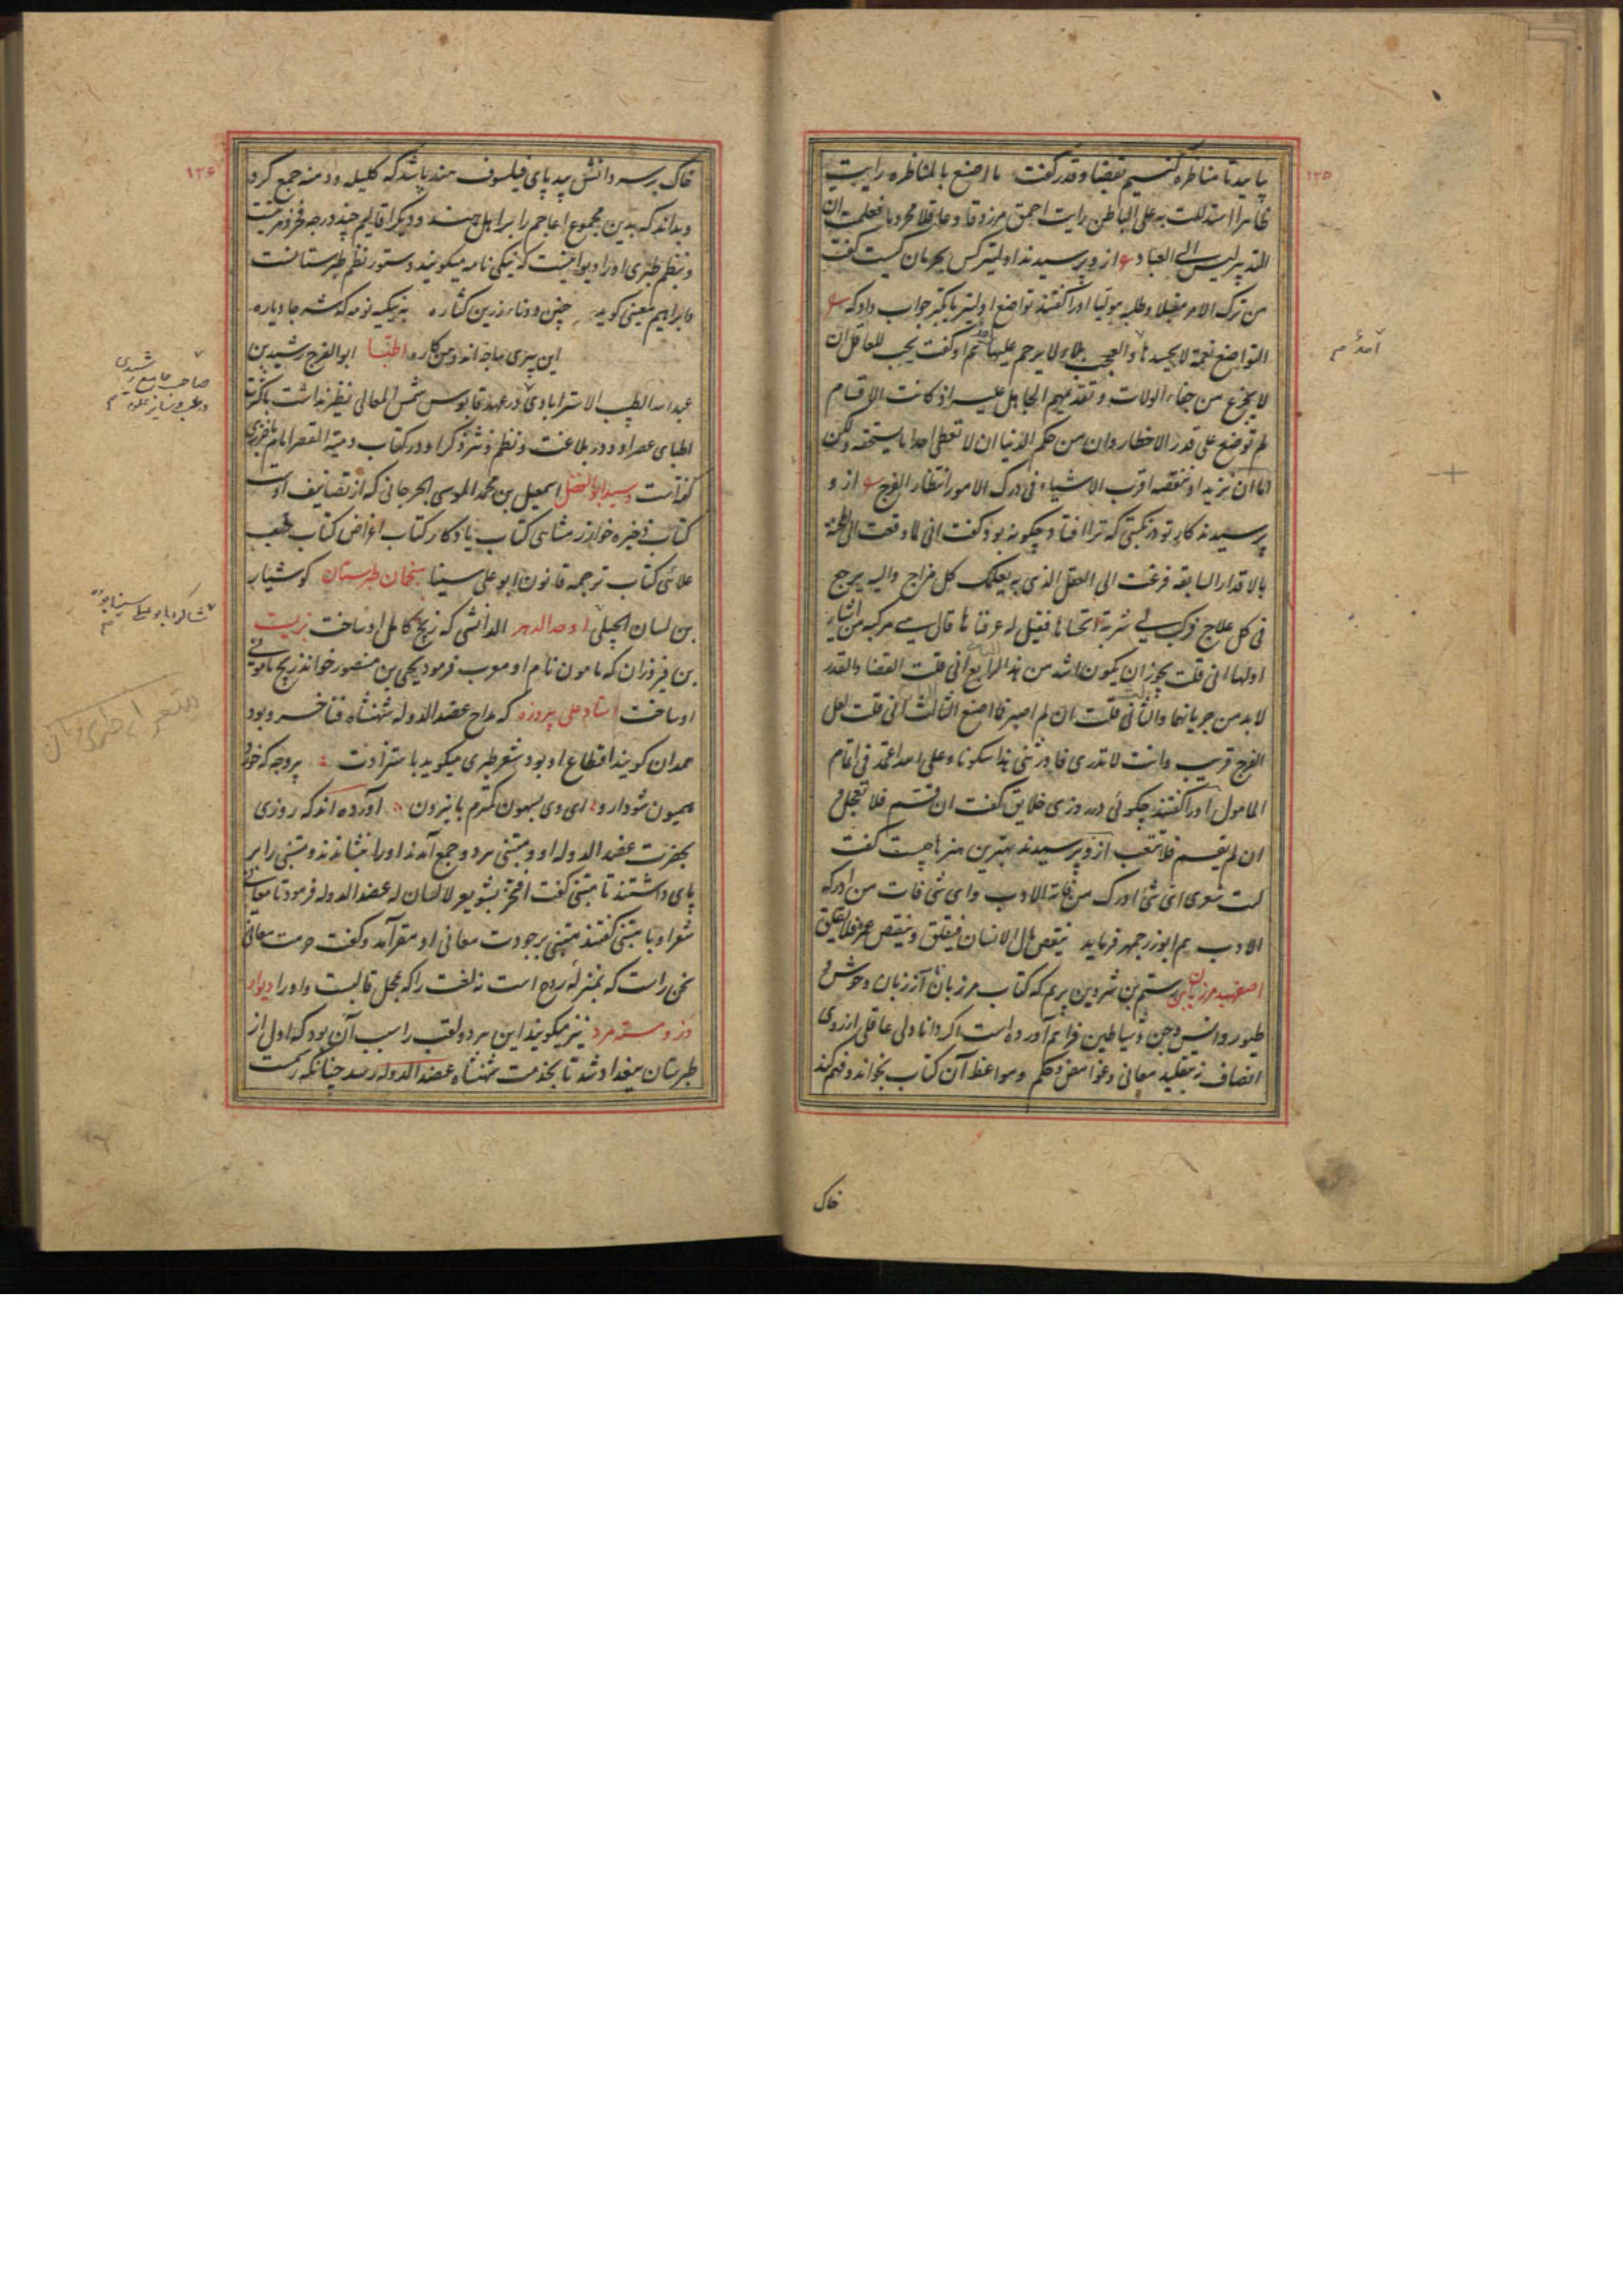 ۱۲۵
بیاید تا مناظره کنیم بقضا و قدر گفت ما اصنع بالمناظره رایت
ظاهرا استدللت به علی الباطن رایت احمق مرزوقا و عاقلا محروما فعلمت ان
التدبیر لیس الی العباد ازو پرسیدند اولیتر کس بحرمان کیست گفت
من ترک الامر مقبلا و طلبه مولیا اورا گفتند تواضع اولیتر یا تکبر جواب داد که
التواضع نعمة لا یحسد علیها و العجب بلاء لا یرحم علیها هم او گفت یجب للعاقل ان
لا یجزع من جفاء الولات و تقدیمهم الجاهل علیه اذ کانت الاقسام
لم توضع علی قدر الاخطار وان من حکم الدنیا ان لا تعطی احدا یستحقه ولکن
اما ان تزیده او تنقصه اقرب الاشیاء فی درک الامور انتظار الفرج ازو
پرسیدند کار تو در نکبتی که ترا افتاد چگونه بود گفت انی لما وقعت الی المحنة
بالاقدار السابقه فزعت الی العقل الذی به یعتدل کل مزاج والیه یرجع
فی کل علاج فرکب لی شربة اتحساها فقیل له عرفناها قال هی مرکبه من اشیا
اولها انی قلت یجوز ان یکون اشد من هذا الرابع انی قلت القضا والقدر
لابد من جریانهما والثانی قلت ان لم اصبر فما اصنع الثالث انی قلت لعل
الفرج قریب وانت لا تدری فاورثنی هذا سکونا وعلی الله اعتمد فی اتمام
المامول اورا گفتند چگوئی در روزی خلایق گفت ان قسم فلا تعجل و
ان لم یقسم فلا تتعب ازو پرسیدند بهترین هنرها چیست گفت
لیت شعری ای شئ ادرک من فاته الادب وای شئ فات من ادرک
الادب هم ابوزرجمهر فرماید ینقص مال الانسان فیقلق و ینقص عمره فلا یقلق
اصفهبد مرزبان بن رستم بن شروین پریم که کتاب مرزبان نامه از زبان وحوش و
طیور و انس و جن و شیاطین فراهم آورده است اگر دانا دلی عاقلی از روی
انصاف نه تقلید معانی و غوامض و حکم و مواعظ آن کتاب بخواند و فهم کند
خاک
آمدهٔ م
۱۲۶
خاک بر سر دانش بیدپای فیلسوف هند پاشد که کلیله و دمنه جمع کرد
و بداند که بدین مجموع اعاجم را بر اهل هند و دیگر اقالیم چند درجه فخر و مزیتست
و بنظم طبری اورا دیوانیست که نیکی نامه میگویند دستور نظم طبرستانست
و ابراهیم معینی گوید چنین دونا زرین کتاره به نیکیه نومه که شر جادیاره
این پیری باجه اند و من کاره اطبّا ابوالفرج رشید بن
عبدالله الطبیب الاسترابادی در عهد قابوس شمس المعالی نظیر نداشت باکثرت
اطبای عصر او و در بلاغت و نظم و نثر ذکر او در کتاب دمیة القصر امام باخرزی
گفته است و سید ابوالفضل اسمعیل بن محمد الموسوی الجرجانی که از تصانیف اوست
کتاب ذخیره خوارزمشاهی کتاب یادگار کتاب اغراض کتاب خف
علائی کتاب ترجمه قانون ابوعلی سینا منجمان طبرستان کوشیار
بن لسان الجیلی اوحد الدهر الدانشی که زیج کامل او ساخت بزیست
بن فیروزان که مامون نام او معرب فرمود یحیی بن منصور خواند زیج مامونی
او ساخت استاد علی پیروزه که مداح عضدالدوله شهنشاه فناخسرو بود
حمدان گویند اقطاع او بود شعر طبری میگوید باسترادت پروجه که خور
همیون شودارو ای وی بسهون کترم بانیرون آورده اند که روزی
بحضرت عضدالدوله او و متنبی هر دو جمع آمدند اورا بنشاندند و متنبی را بر
پای داشتند تا متنبی گفت افتخر بشویعر لا لسان له عضدالدوله فرمود تا معانی
شعر او با متنبی گفتند متنبی بر جودت معانی او مقر آمد و گفت حرمت معانی
سخن راست که بمنزله روح است نه لغت را که بمحل قالبست و اورا دیوار
دز و مسته مرد نیز میگویند این هر دو لقب را سبب آن بود که اول از
طبرستان ببغداد شد تا بخدمت شهنشاه عضدالدوله رسد چنانکه رسمت
صاحب جامع رشیدی
شاگرد ابوعلی سینا بوده
م